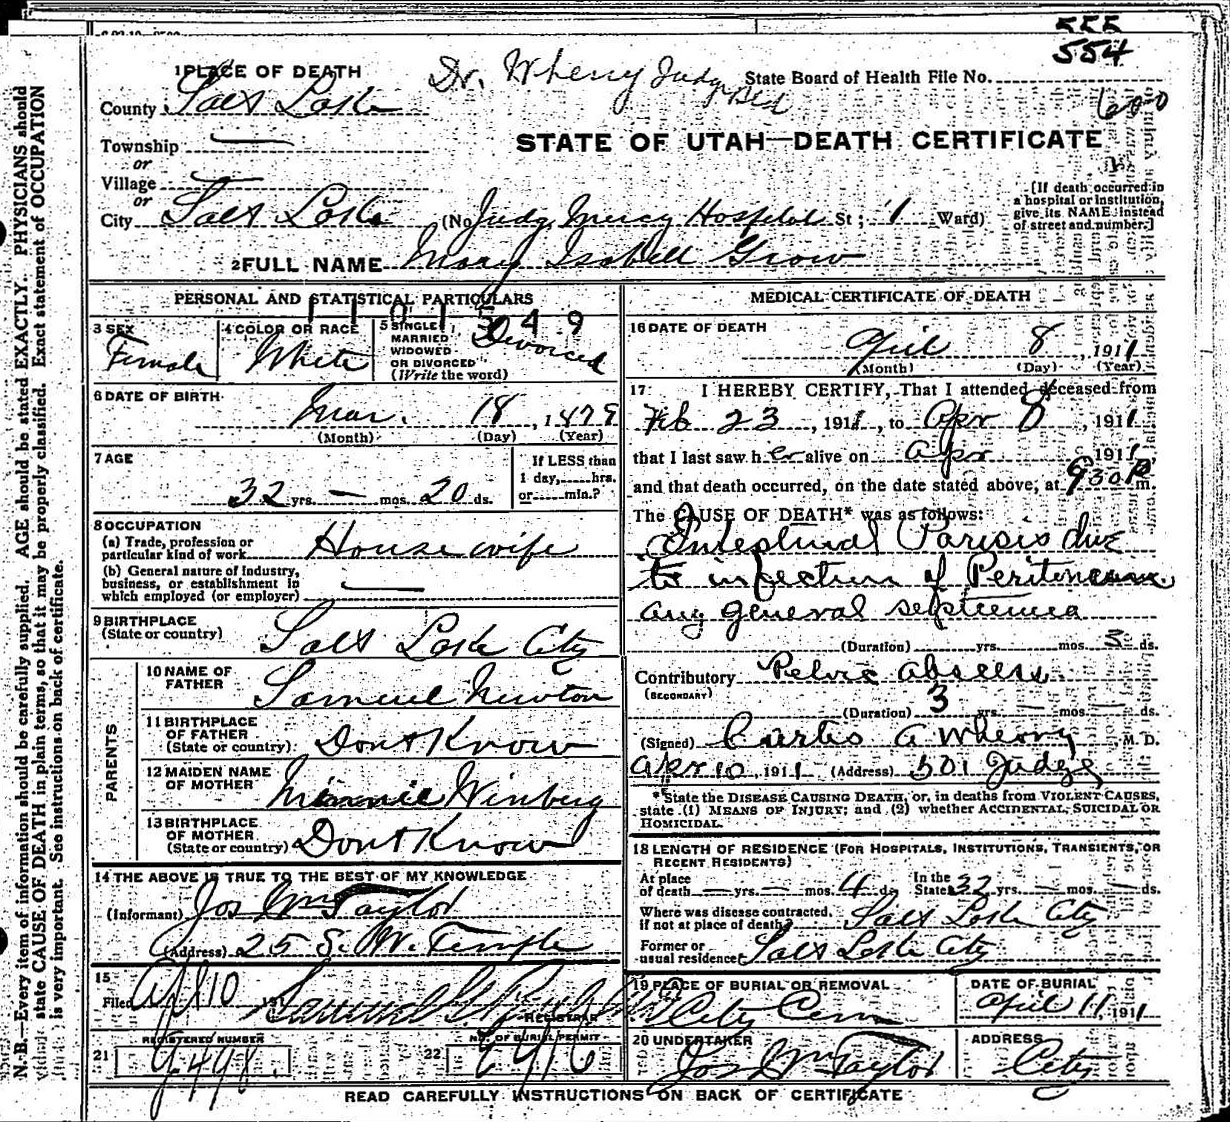 555
554
1 PLACE OF DEATH
Dr. Wherry Judge Bld
State Board of Health File No.
County Salt Lake
600
Township —
STATE OF UTAH—DEATH CERTIFICATE
or
Village —
or
City Salt Lake (No Judge Mercy Hospital St; 1 Ward)
[If death occurred in
a hospital or institution,
give its NAME instead
of street and number.]
2 FULL NAME Mary Isabell Grow
PERSONAL AND STATISTICAL PARTICULARS
1101349
3 SEX
Female
4 COLOR OR RACE
White
5 SINGLE,
MARRIED
WIDOWED
OR DIVORCED
(Write the word)
Divorced
6 DATE OF BIRTH
Mar. 18, 1879
(Month) (Day) (Year)
7 AGE
32 yrs. — mos. 20 ds.
If LESS than
1 day,......hrs.
or......min.?
8 OCCUPATION
(a) Trade, profession or
particular kind of work
House wife
(b) General nature of industry,
business, or establishment in
which employed (or employer) —
9 BIRTHPLACE
(State or country) Salt Lake City
PARENTS
10 NAME OF
FATHER
Samuel Newton
11 BIRTHPLACE
OF FATHER
(State or country) Dont Know
12 MAIDEN NAME
OF MOTHER
Minnie Winberg
13 BIRTHPLACE
OF MOTHER
(State or country) Dont Know
14 THE ABOVE IS TRUE TO THE BEST OF MY KNOWLEDGE
(Informant) Jos Wm Taylor
(Address) 25 S. W. Temple
15
Filed Apl 10 Samuel G.
REGISTRAR
REGISTERED NUMBER
21 9498.
NO. OF BURIAL PERMIT
22
MEDICAL CERTIFICATE OF DEATH
16 DATE OF DEATH
April 8, 1911
(Month) (Day) (Year)
17 I HEREBY CERTIFY, That I attended deceased from
Feb 23, 1911, to Apr 8, 1911
that I last saw her alive on Apr 1911
and that death occurred, on the date stated above, at 930 P m.
The CAUSE OF DEATH* was as follows:
Intestinal Parisis due
to infection of Peritoneum
any general septicemia
(Duration) yrs. mos. 3 ds.
Contributory Pelvic abscess.
(SECONDARY)
(Duration) 3 yrs. — mos. — ds.
(Signed) Curtis A Wherry, M. D.
Apr 10, 1911 (Address) 501 Judge
*State the DISEASE CAUSING DEATH, or, in deaths from VIOLENT CAUSES,
state (1) MEANS OF INJURY; and (2) whether ACCIDENTAL, SUICIDAL OR
HOMICIDAL.
18 LENGTH OF RESIDENCE (FOR HOSPITALS, INSTITUTIONS, TRANSIENTS, OR
RECENT RESIDENTS)
At place
of death — yrs. — mos. 4 ds.
In the
State 32 yrs. — mos. — ds.
Where was disease contracted,
if not at place of death? Salt Lake City
Former or
usual residence Salt Lake City
19 PLACE OF BURIAL OR REMOVAL
City Cem
DATE OF BURIAL
April 11 1911
20 UNDERTAKER
Jos Wm Taylor
ADDRESS
City
READ CAREFULLY INSTRUCTIONS ON BACK OF CERTIFICATE
N.B.—Every item of information should be carefully supplied. AGE should be stated EXACTLY. PHYSICIANS should
state CAUSE OF DEATH in plain terms, so that it may be properly classified. Exact statement of OCCUPATION
is very important. See instructions on back of certificate.